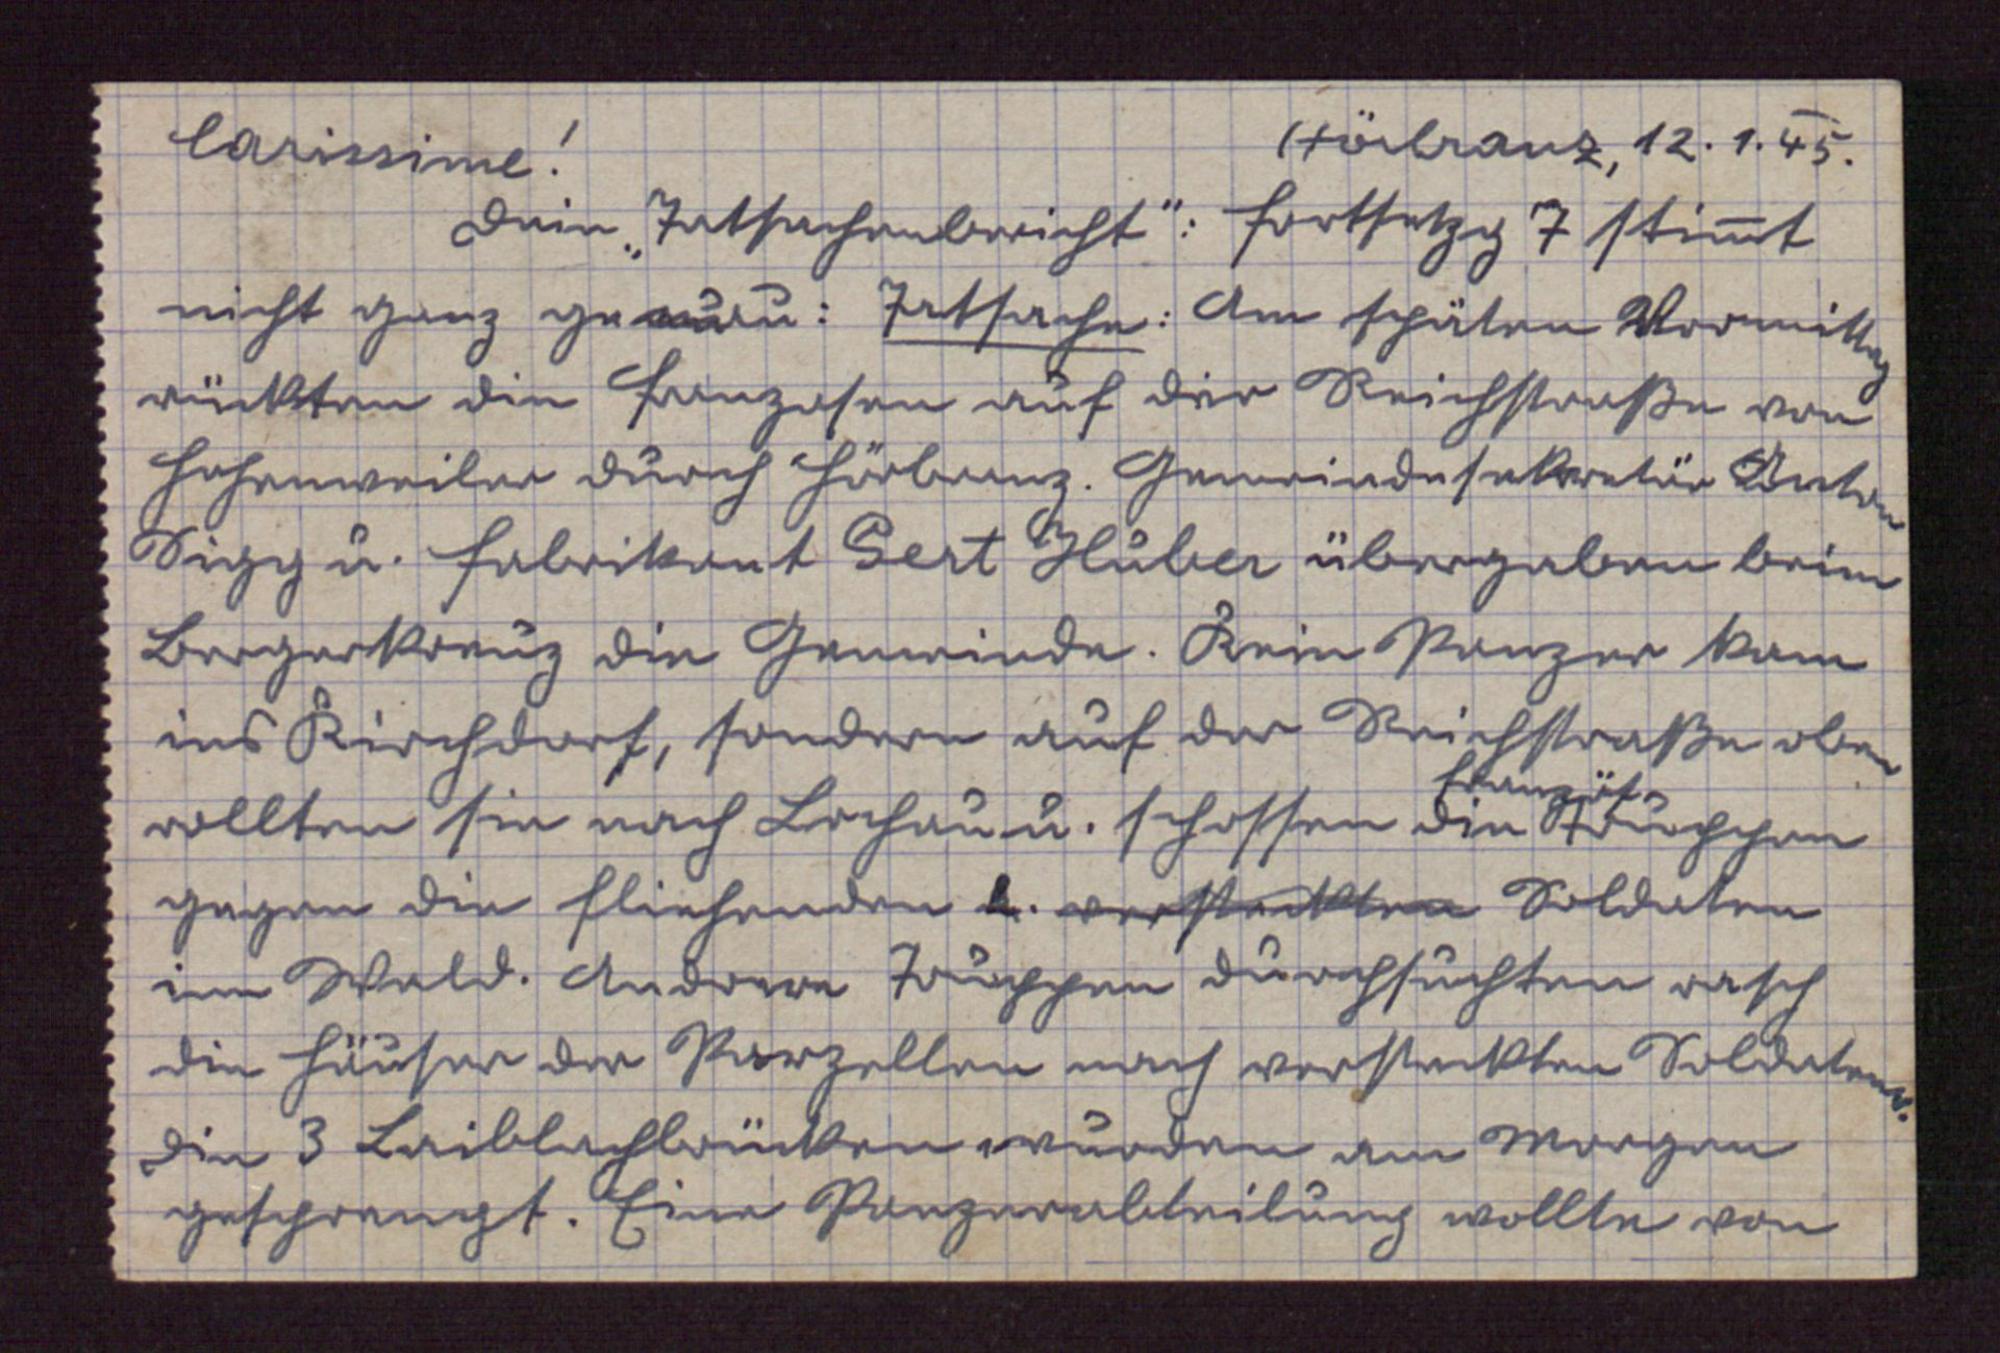 Carissime! Hörbranz, 12.1.45.
Dein „Tatsachenbericht": Fortsetzg 7 stim̅t
nicht ganz genau: Tatsache: Am späten Vormittag
rückten die Franzosen auf der Reichstraße von
Hohenweiler durch Hörbranz. Gemeindesekretär Anton
Sigg u. Fabrikant Gert Huber übergaben beim
Bergerkreuz die Gemeinde. Kein Panzer kam
ins Kirchdorf, sondern auf der Reichstraße oben
französ.
rollten sie nach Lochau u. schossen die Truppen
gegen die fliehenden u. versteckten Soldaten
im Wald. Andere Truppen durchsuchten rasch
die Häuser der Parzellen nach versteckten Soldaten.
Die 3 Laiblachbrücken wurden am Morgen
gesprengt. Eine Panzerabteilung wollte von